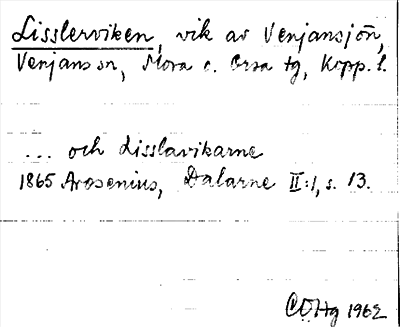 Lisslerviken, vik av Venjansjön,
Venjans sn, Mora o. Orsa tg, Kopp. l.
... och Lisslavikarne
1865 Arosenius, Dalarne II:1, s. 13.
CÖHg 1962